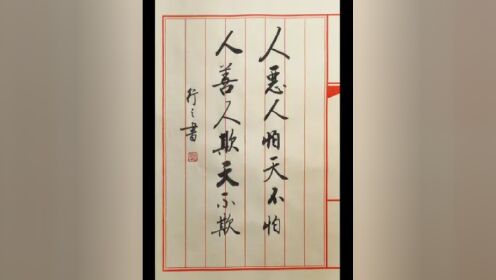 人惡人怕天不怕
人善人欺天不欺
行之書